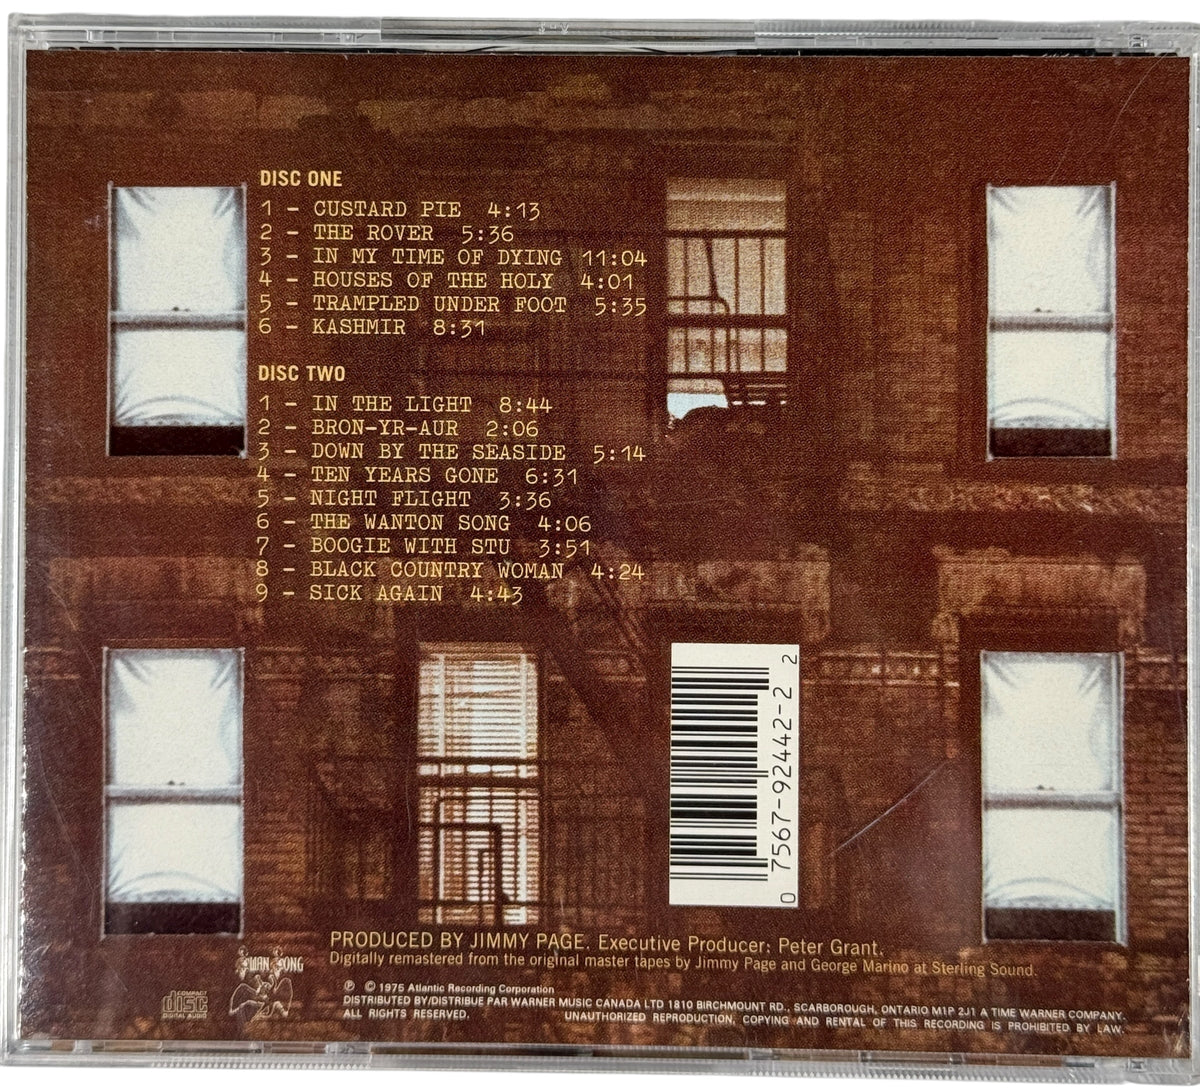 DISC ONE
1 - CUSTARD PIE 4:13
2 - THE ROVER 5:36
3 - IN MY TIME OF DYING 11:04
4 - HOUSES OF THE HOLY 4:01
5 - TRAMPLED UNDER FOOT 5:35
6 - KASHMIR 8:31
DISC TWO
1 - IN THE LIGHT 8:44
2 - BRON-YR-AUR 2:06
3 - DOWN BY THE SEASIDE 5:14
4 - TEN YEARS GONE 6:31
5 - NIGHT FLIGHT 3:36
6 - THE WANTON SONG 4:06
7 - BOOGIE WITH STU 3:51
8 - BLACK COUNTRY WOMAN 4:24
9 - SICK AGAIN 4:43
0 7567-92442-2 2
PRODUCED BY JIMMY PAGE. Executive Producer: Peter Grant.
Digitally remastered from the original master tapes by Jimmy Page and George Marino at Sterling Sound.
SWAN SONG
COMPACT
disc
DIGITAL AUDIO
℗ © 1975 Atlantic Recording Corporation
DISTRIBUTED BY/DISTRIBUE PAR WARNER MUSIC CANADA LTD 1810 BIRCHMOUNT RD., SCARBOROUGH, ONTARIO M1P 2J1 A TIME WARNER COMPANY.
ALL RIGHTS RESERVED. UNAUTHORIZED REPRODUCTION, COPYING AND RENTAL OF THIS RECORDING IS PROHIBITED BY LAW.